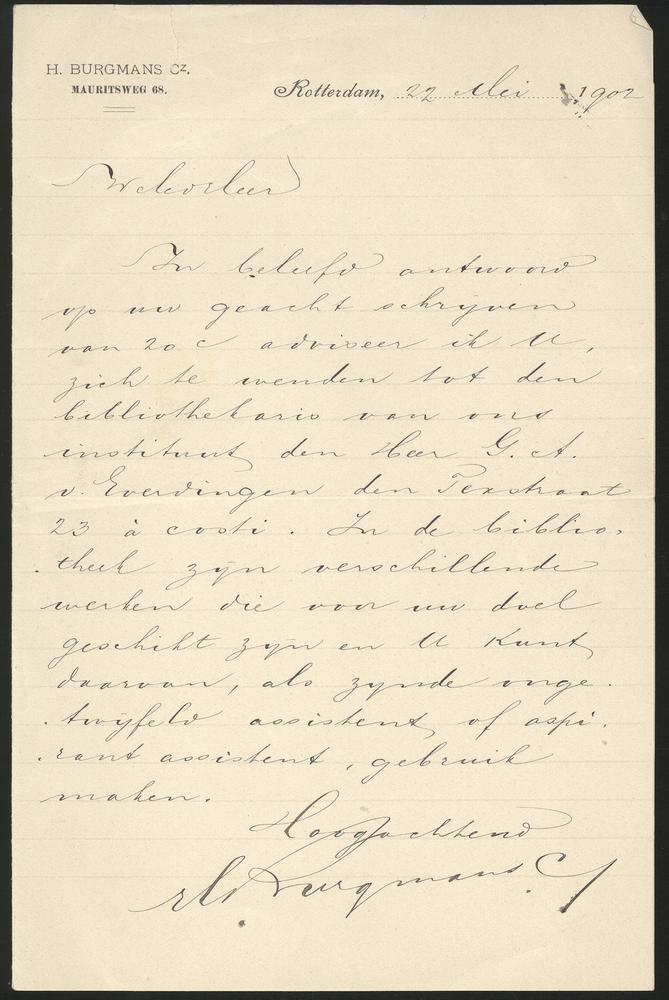 H. BURGMANS Cz.
MAURITSWEG 68.
Rotterdam, 22 Mei 1902
WelEdelHeer
In beleefd antwoord
op uw geacht schrijven
van 20 c adviseer ik U,
zich te wenden tot den
bibliothekaris van ons
instituut, den Heer G. A.
v. Everdingen den Texstraat
23 à costi. In de biblio-
theek zijn verschillende
werken die voor uw doel
geschikt zijn en U kunt
daarvan, als zijnde onge-
twijfeld assistent, of aspi-
rant assistent, gebruik
maken.
Hoogachtend
H Burgmans Cz